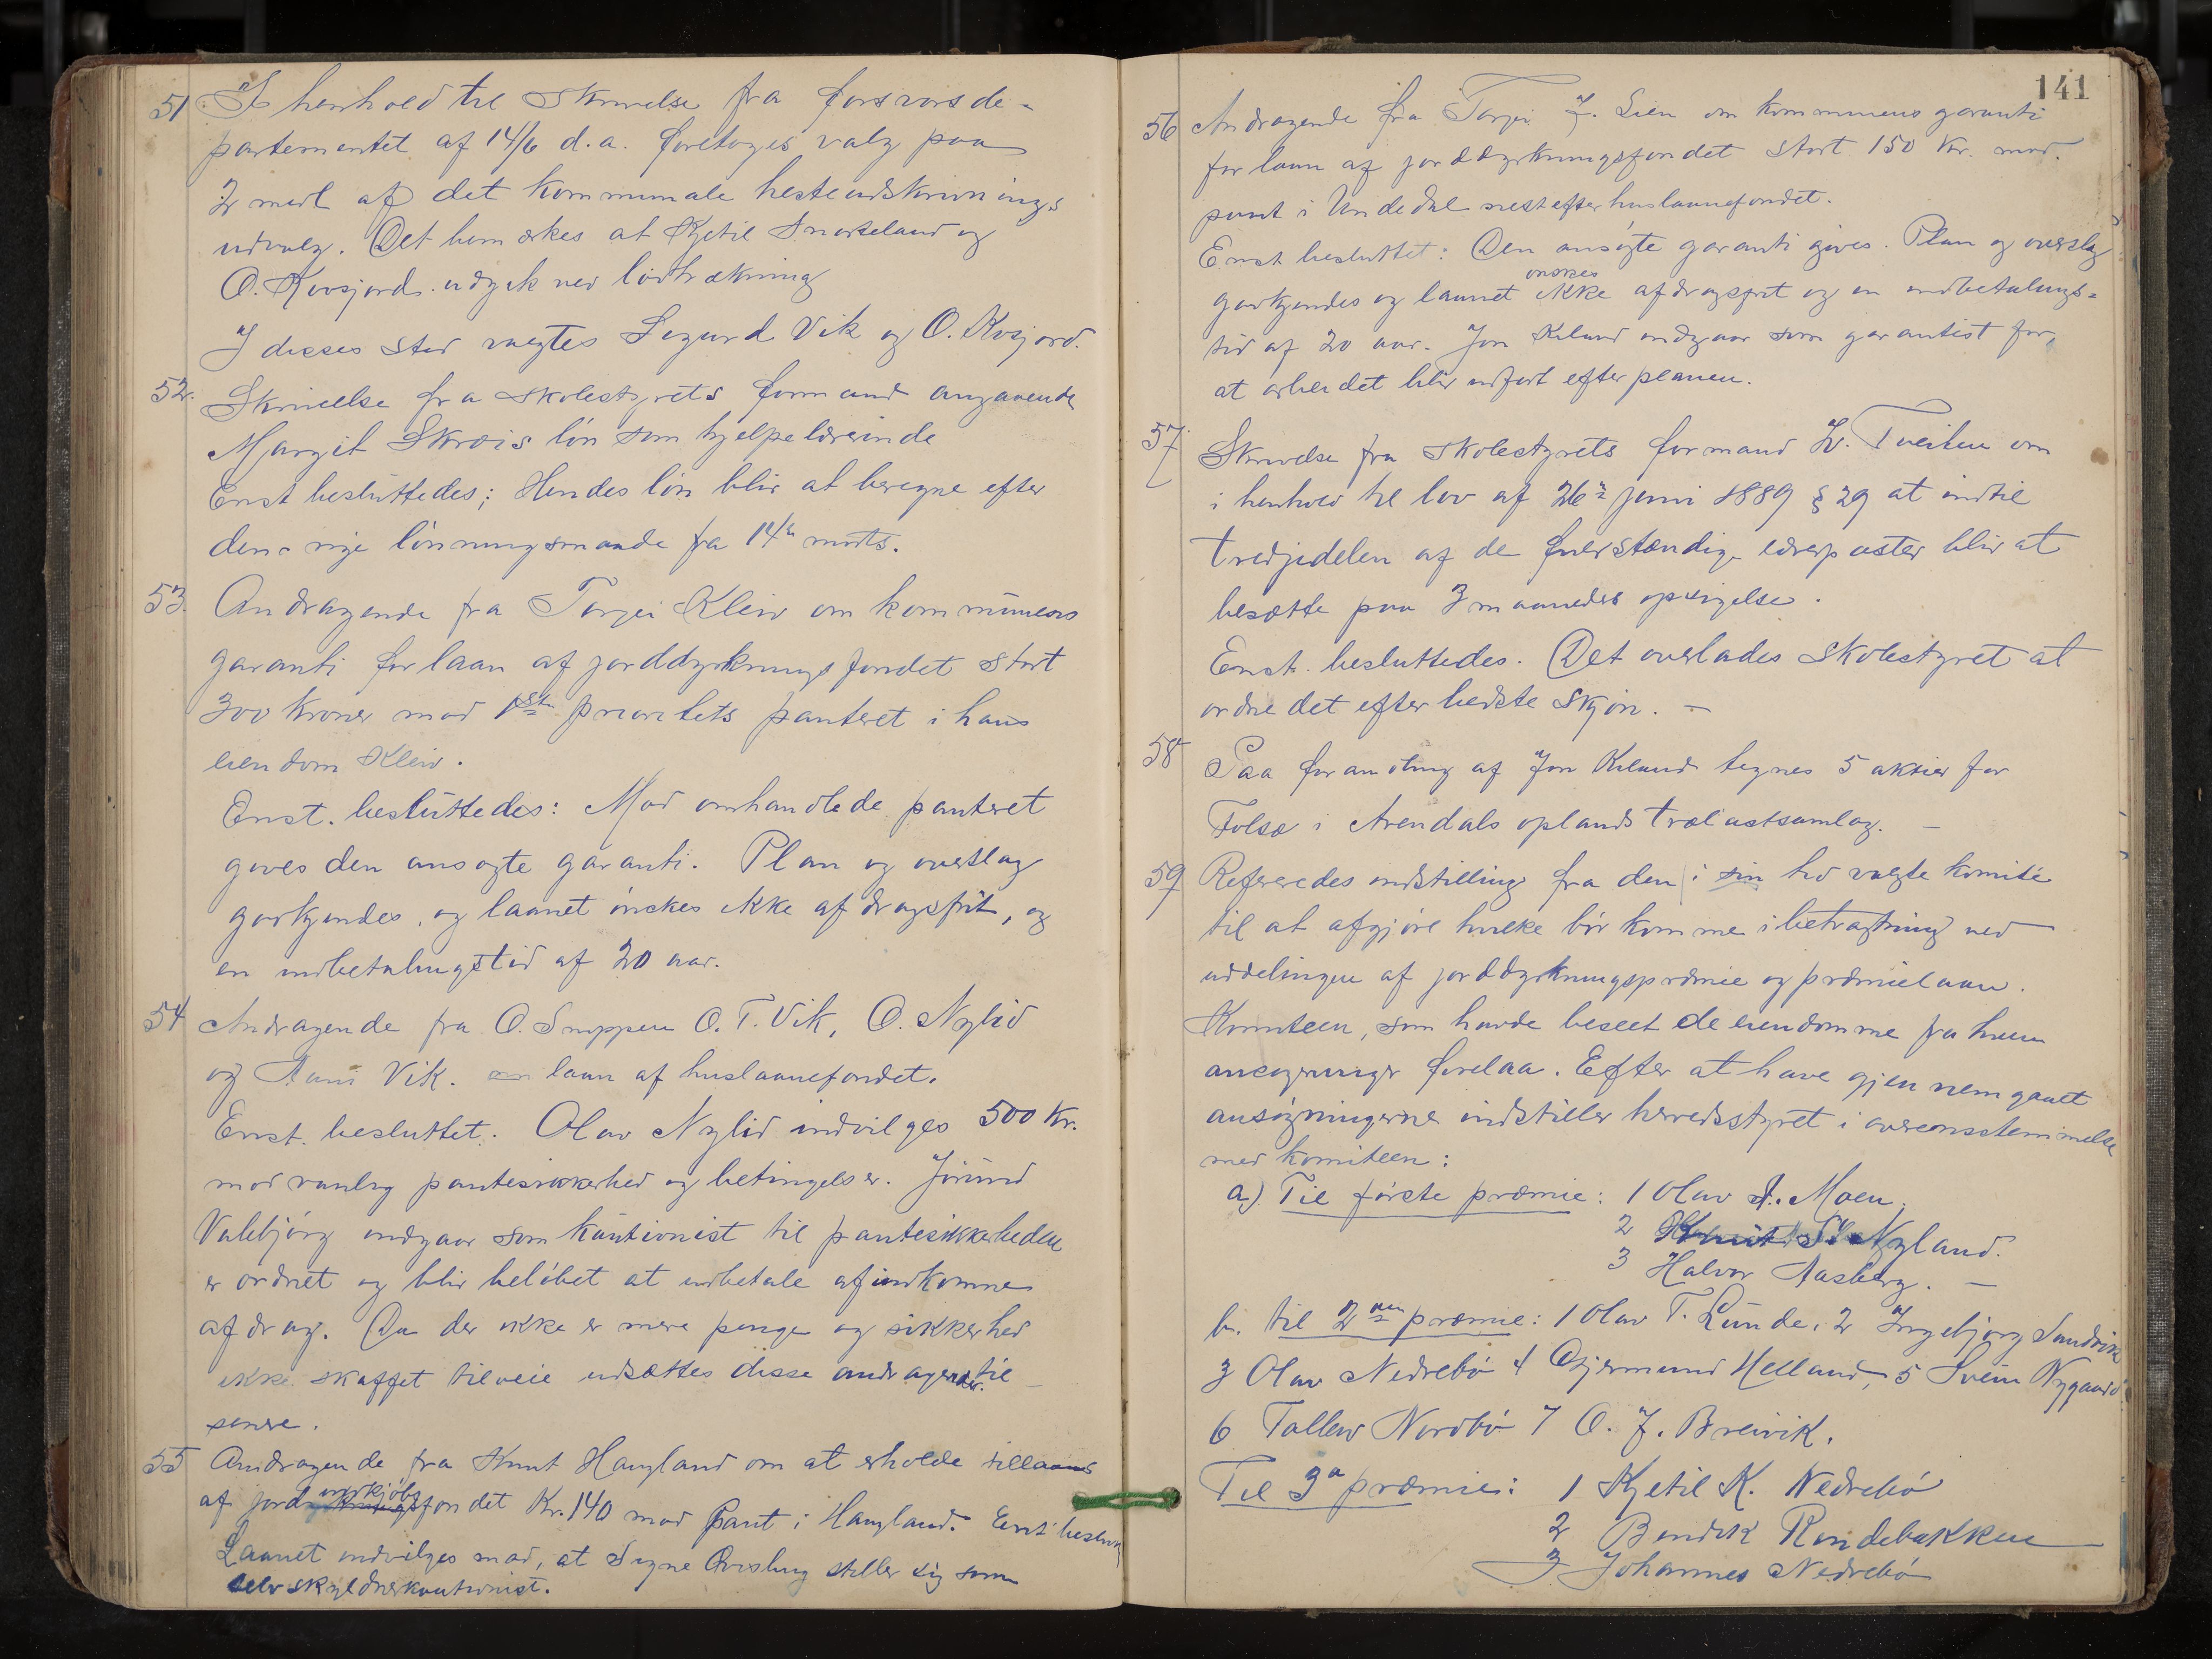 51 I henhold til Skrivelse fra forsvarsde-
partementet af 14/6 d.a. foretoges valg paa
2 medl af det kommunale hesteudskrivnings
udvalg. Det bemærkes at Kjetil Snarteland og
O. Kvosjord udgik ved lodtrækning
I disses sted valgtes Sigurd Vik og O. Kosjord.
52. Skrivelse fra skolestyrets formand angaaende
Margit Skrois lön som hjelpelærerinde
Enst besluttedes; Hendes lön blir at beregne efter
den nye lönningsmaade fra 14de marts.
53. Andragende fra Torjei Kleiv om kommunens
garanti for laan af jorddyrkningsfondet stort
300 kroner mod 1ste prioritets panteret i hans
eiendom Kleiv.
Enst. besluttedes: Mod omhandlede panteret
gives den ansøgte garanti. Plan og overslag
godkjendes, og laanet önskes ikke afdragsfrit, og
en indbetalingstid af 20 aar.
54 Andragende fra O. Smeppen O. T. Vik, O. Nylid
og Aani Vik. om laan af huslaanefondet.
Enst. besluttet. Olav Nylid indvilges 500 Kr.
mod vanlig pantesikkerhed og betingelser. Jörund
Valebjörg indgaar som kautionist til pantesikkerheden
er ordnet og blir belöbet at udbetale af indkomne
afdrag. Da der ikke er mere penge og sikkerhed
ikke skaffet tilveie udsættes disse andragender til
senere.
55 Andragende fra Knut Haugland om at erholde tillaans
af jordindkjöbsfondet Kr. 140 mod Pant i Haugland. Enst beslut
Laanet indvilges mod, at Signe Qvisling stiller sig som
selvskyldnerkautionist.
141
56 Andragende fra Torjei J. Lien om kommunens garanti
for laan af jorddyrkningsfondet stort 150 Kr. mod.
pant i Undedal nest efter huslaanefondet.
Enst besluttet: Den ansögte garanti gives. Plan og overslag
godkjendes og laanet önskes ikke afdragsfrit og en indbetalings=
tid af 20 aar. Jon Kiland indgaar som garantist for,
at arbeidet blir udfört efter planen.
57 Skrivelse fra skolestyrets formand H. Tveiten om
i henhold til lov af 26de juni 1889 § 29 at indtil
tredjedelen af de selvstændige lærerposter blir at
besætte paa 3 maaneders opsigelse.
Enst. besluttedes. Det overlades skolestyret at
ordne det efter bedste skjön. -
58 Paa foranstaltning af Jon Kiland tegnes 5 aktier for
Folsæ i Arendals oplands trælastsamlag. -
59 Refereredes indstilling fra den i sin tid valgte komité
til at afgjöre hvilke bör komme i betragtning ved
uddelingen af jorddyrkningspræmie og præmielaan.
Komiteen, som havde beseet de eiendomme fra hvem
ansøgninger forelaa. Efter at have gjennemgaaet
ansögningerne indstiller herredsstyret i overensstemmelse
med komiteen:
a) Til förste præmie: 1 Olav A. Moen,
2 Knut S. Nyland.
3 Halvor Aasberg. -
b. til 2den præmie: 1 Olav T. Lunde, 2 Ingebjörg Sandvik
3 Olav Nedrebö 4 Gjermund Helland, 5 Svein Nygaard
6 Tallev Nordbö 7 O. J. Breivik.
Til 3die præmie: 1 Kjetil K. Nedrebö
2 Bendik Rindebakken
3 Johannes Nedrebö